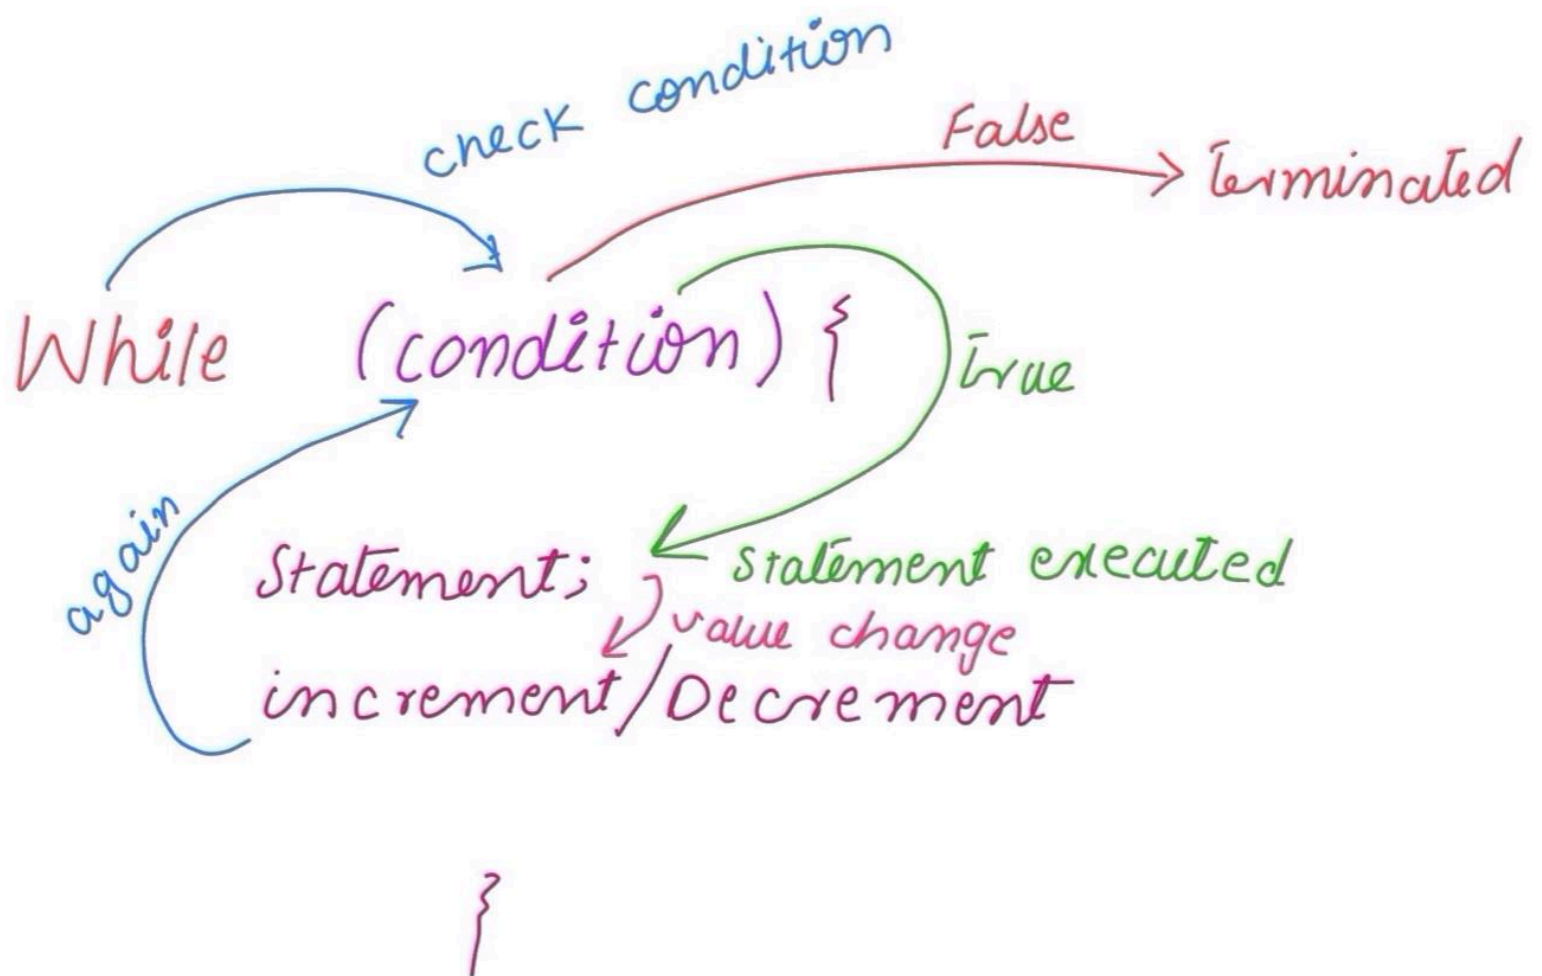 check condition
False
Terminated
While (condition) {
True
again
Statement; statement executed
value change
increment/Decrement
}